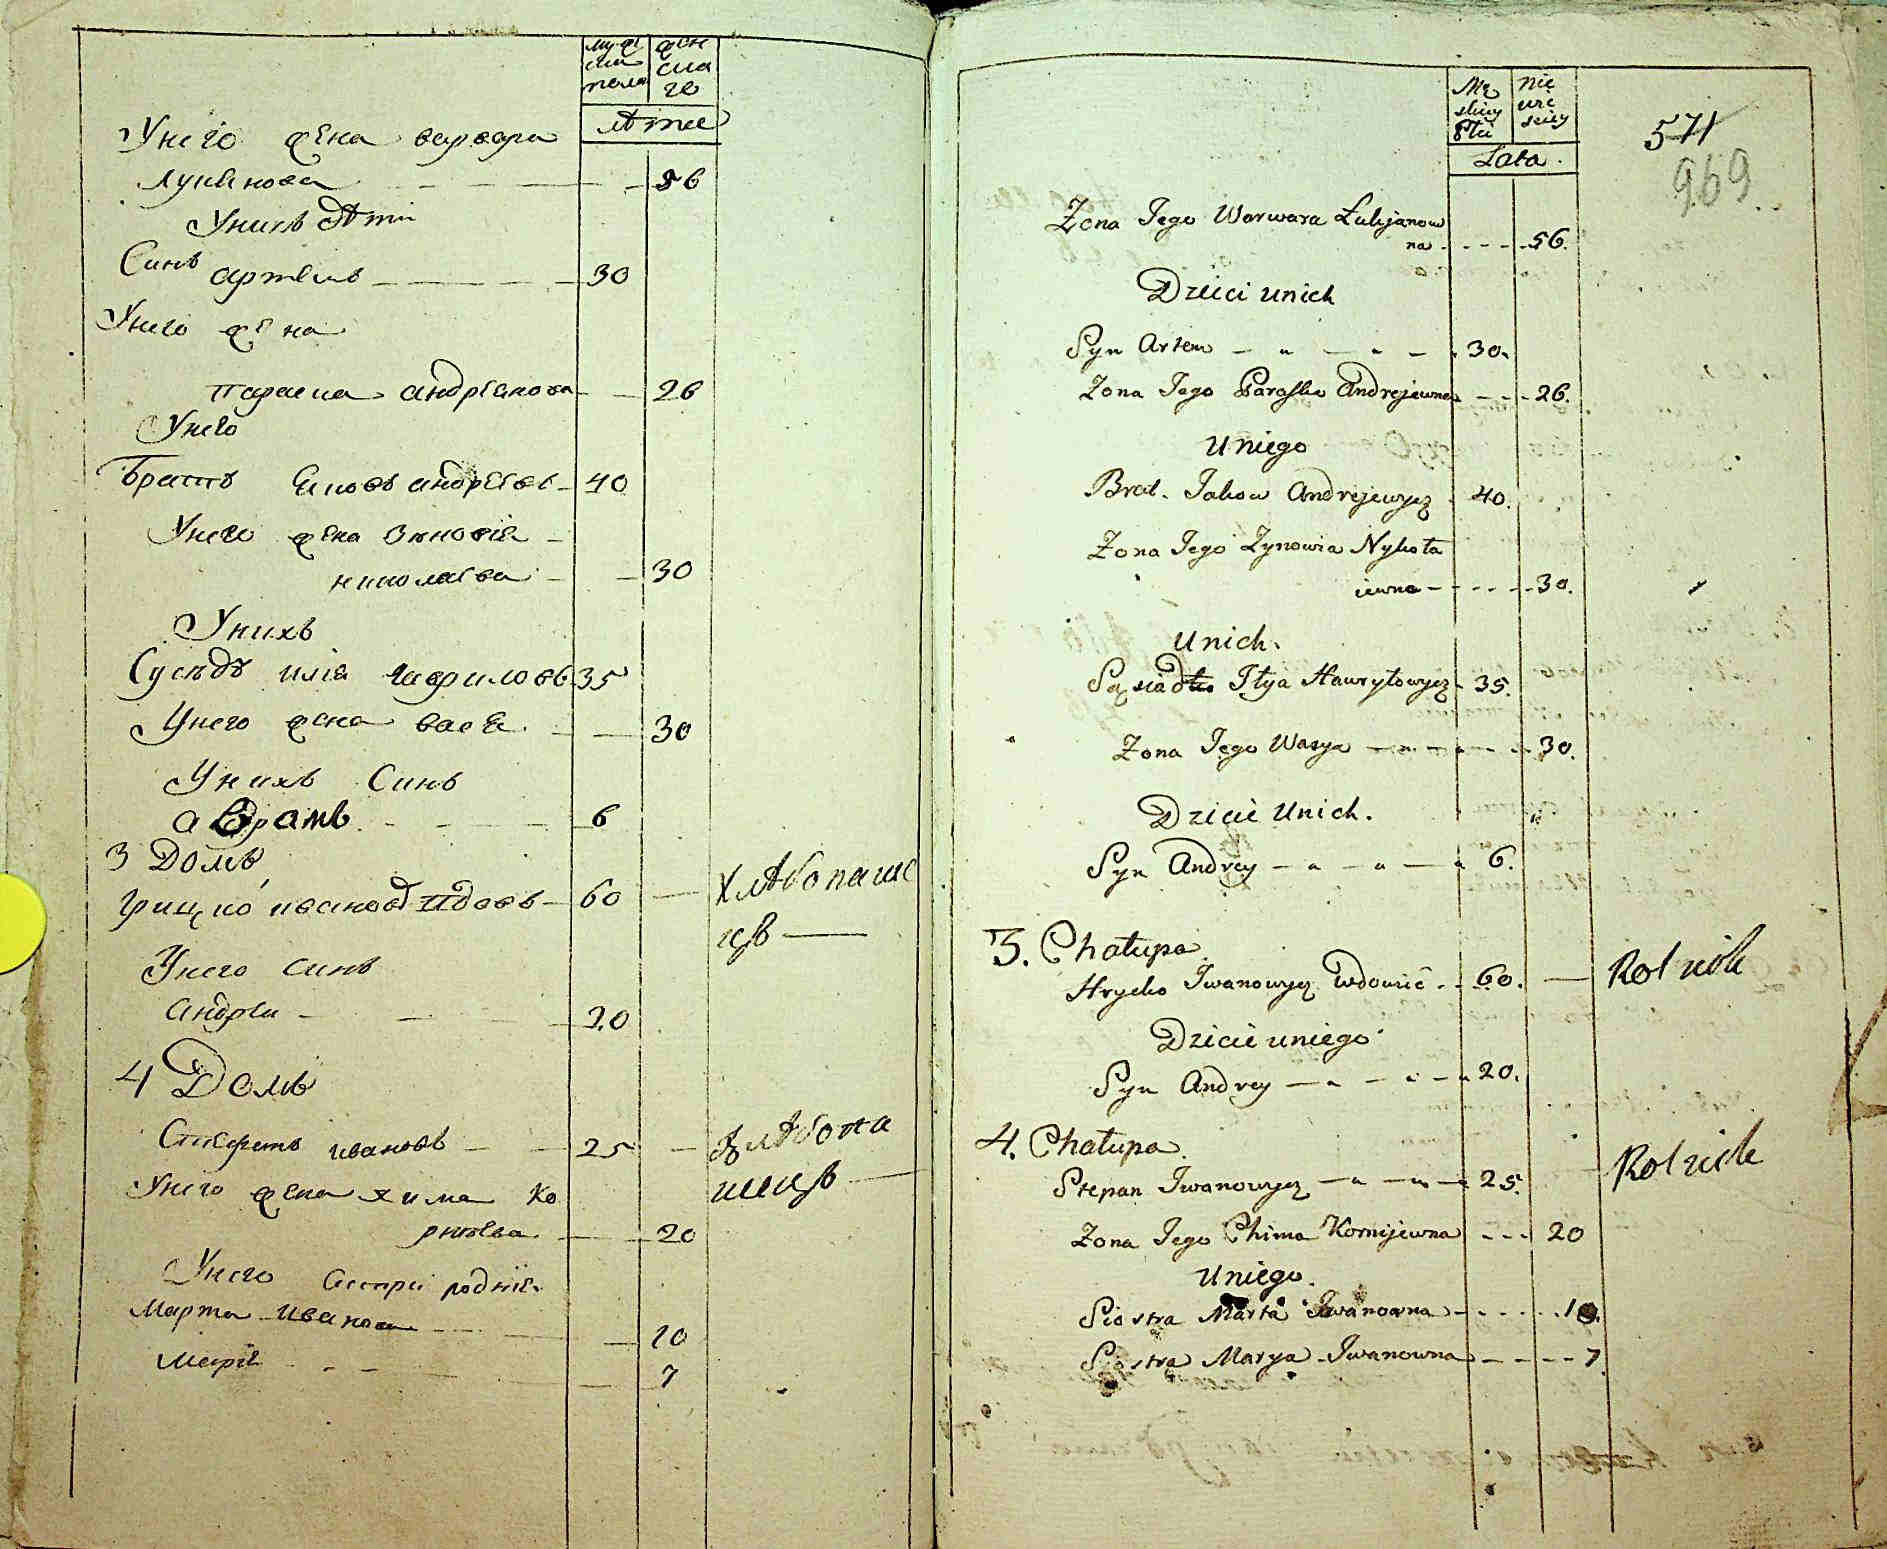 мужеска пола
женска го
лѣтъ
Унего жена варвара
лукянова 56
Унихъ дѣти
Синъ артемъ 30
Унего жена
параска андріянова 26
Унего
братъ яковъ андрѣевъ 40
Унего жена зѣновія
николаева 30
Унихъ
Сусѣдъ илія гавриловъ 35
Унего жена вася 30
Унихъ Синъ
аврамъ 6
3 Домъ
грицко ивановъ вдовъ 60 хлѣбопаше
цъ
Унего синъ
андрей 20
4 Домъ
Стефанъ ивановъ 25 хлѣбопа
шецъ
Унего жена хима ко
рнѣева 20
Унего сестри родніе
Марта Иванова 10
Марія 7
Mę skiey Płci
Nie wie sciey
Lata.
571
969
Żona Jego Warwara Łukjanow
na 56.
Dzieci unich
Syn Artem 30.
Żona Jego Paraska Andrejewna 26.
Uniego
Brat Jakow Andrejewycz 40.
Żona Jego Zynowia Nykoła
iewna 30.
Unich.
Sąsiad Iłya Hawryłowycz 35.
Żona Jego Wasya 30.
Dzieci Unich.
Syn Andrey 6.
3. Chałupa
Hrycko Iwanowycz Wdowiec 60. Rolnik
Dzieci uniego
Syn Andrey 20.
4. Chałupa.
Stepan Iwanowycz 25. Rolnik
Żona Jego Chima Kornijewna 20
Uniego.
Siostra Marta Iwanowna 10.
Siostra Marya Iwanowna 7